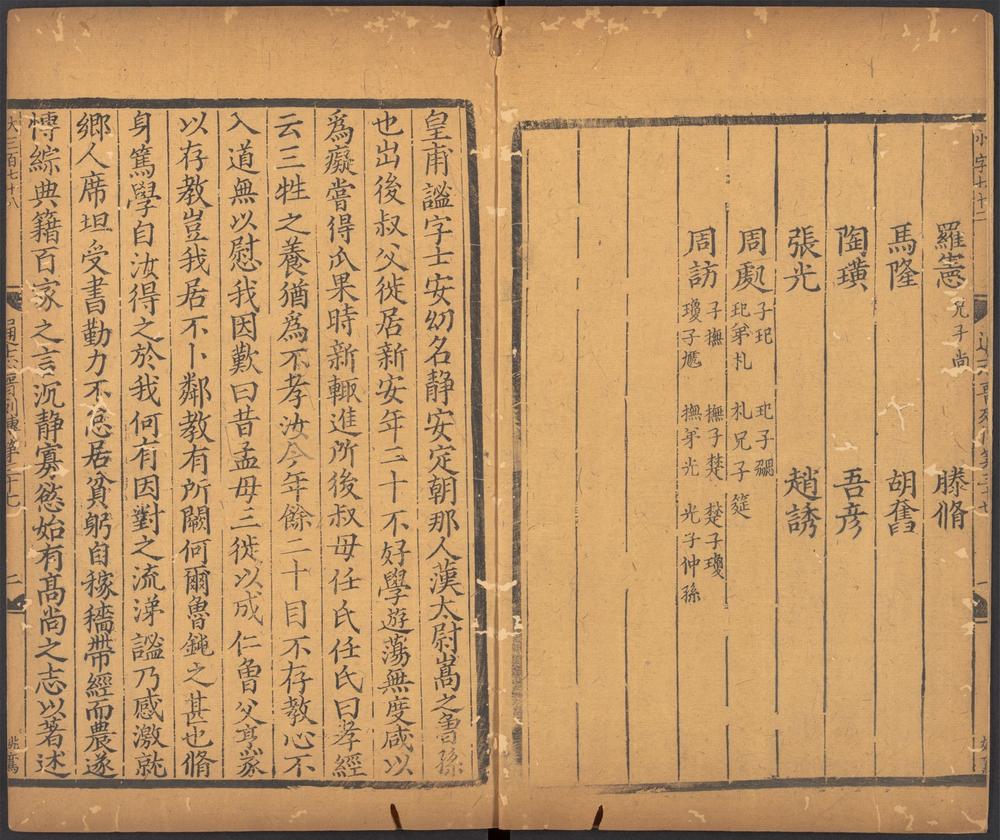 小字七十二
羅憲 兄子尚 滕脩
馬隆 胡奮
陶璜 吾彦
張光 趙誘
周處 子玘 玘子勰
玘弟札 札兄子莚
周訪 子撫 撫子楚 楚子瓊
瓊子虓 撫弟光 光子仲孫
皇甫謐字士安幼名静安定朝那人漢太尉嵩之曽孫
也出後叔父徙居新安年二十不好學遊蕩無度咸以
爲癡嘗得瓜果時新輙進所後叔母任氏任氏曰孝經
云三牲之養猶爲不孝汝今年餘二十目不存教心不
入道無以慰我因歎曰昔孟母三徙以成仁曾父烹豕
以存教豈我居不卜鄰教有所闕何爾魯鈍之甚也脩
身篤學自汝得之於我何有因對之流涕謐乃感激就
鄉人席坦受書勤力不怠居貧躬自稼穡帶經而農遂
博綜典籍百家之言沉静寡慾始有高尚之志以著述
大三百七十八
通志晋列傳第三十七
二